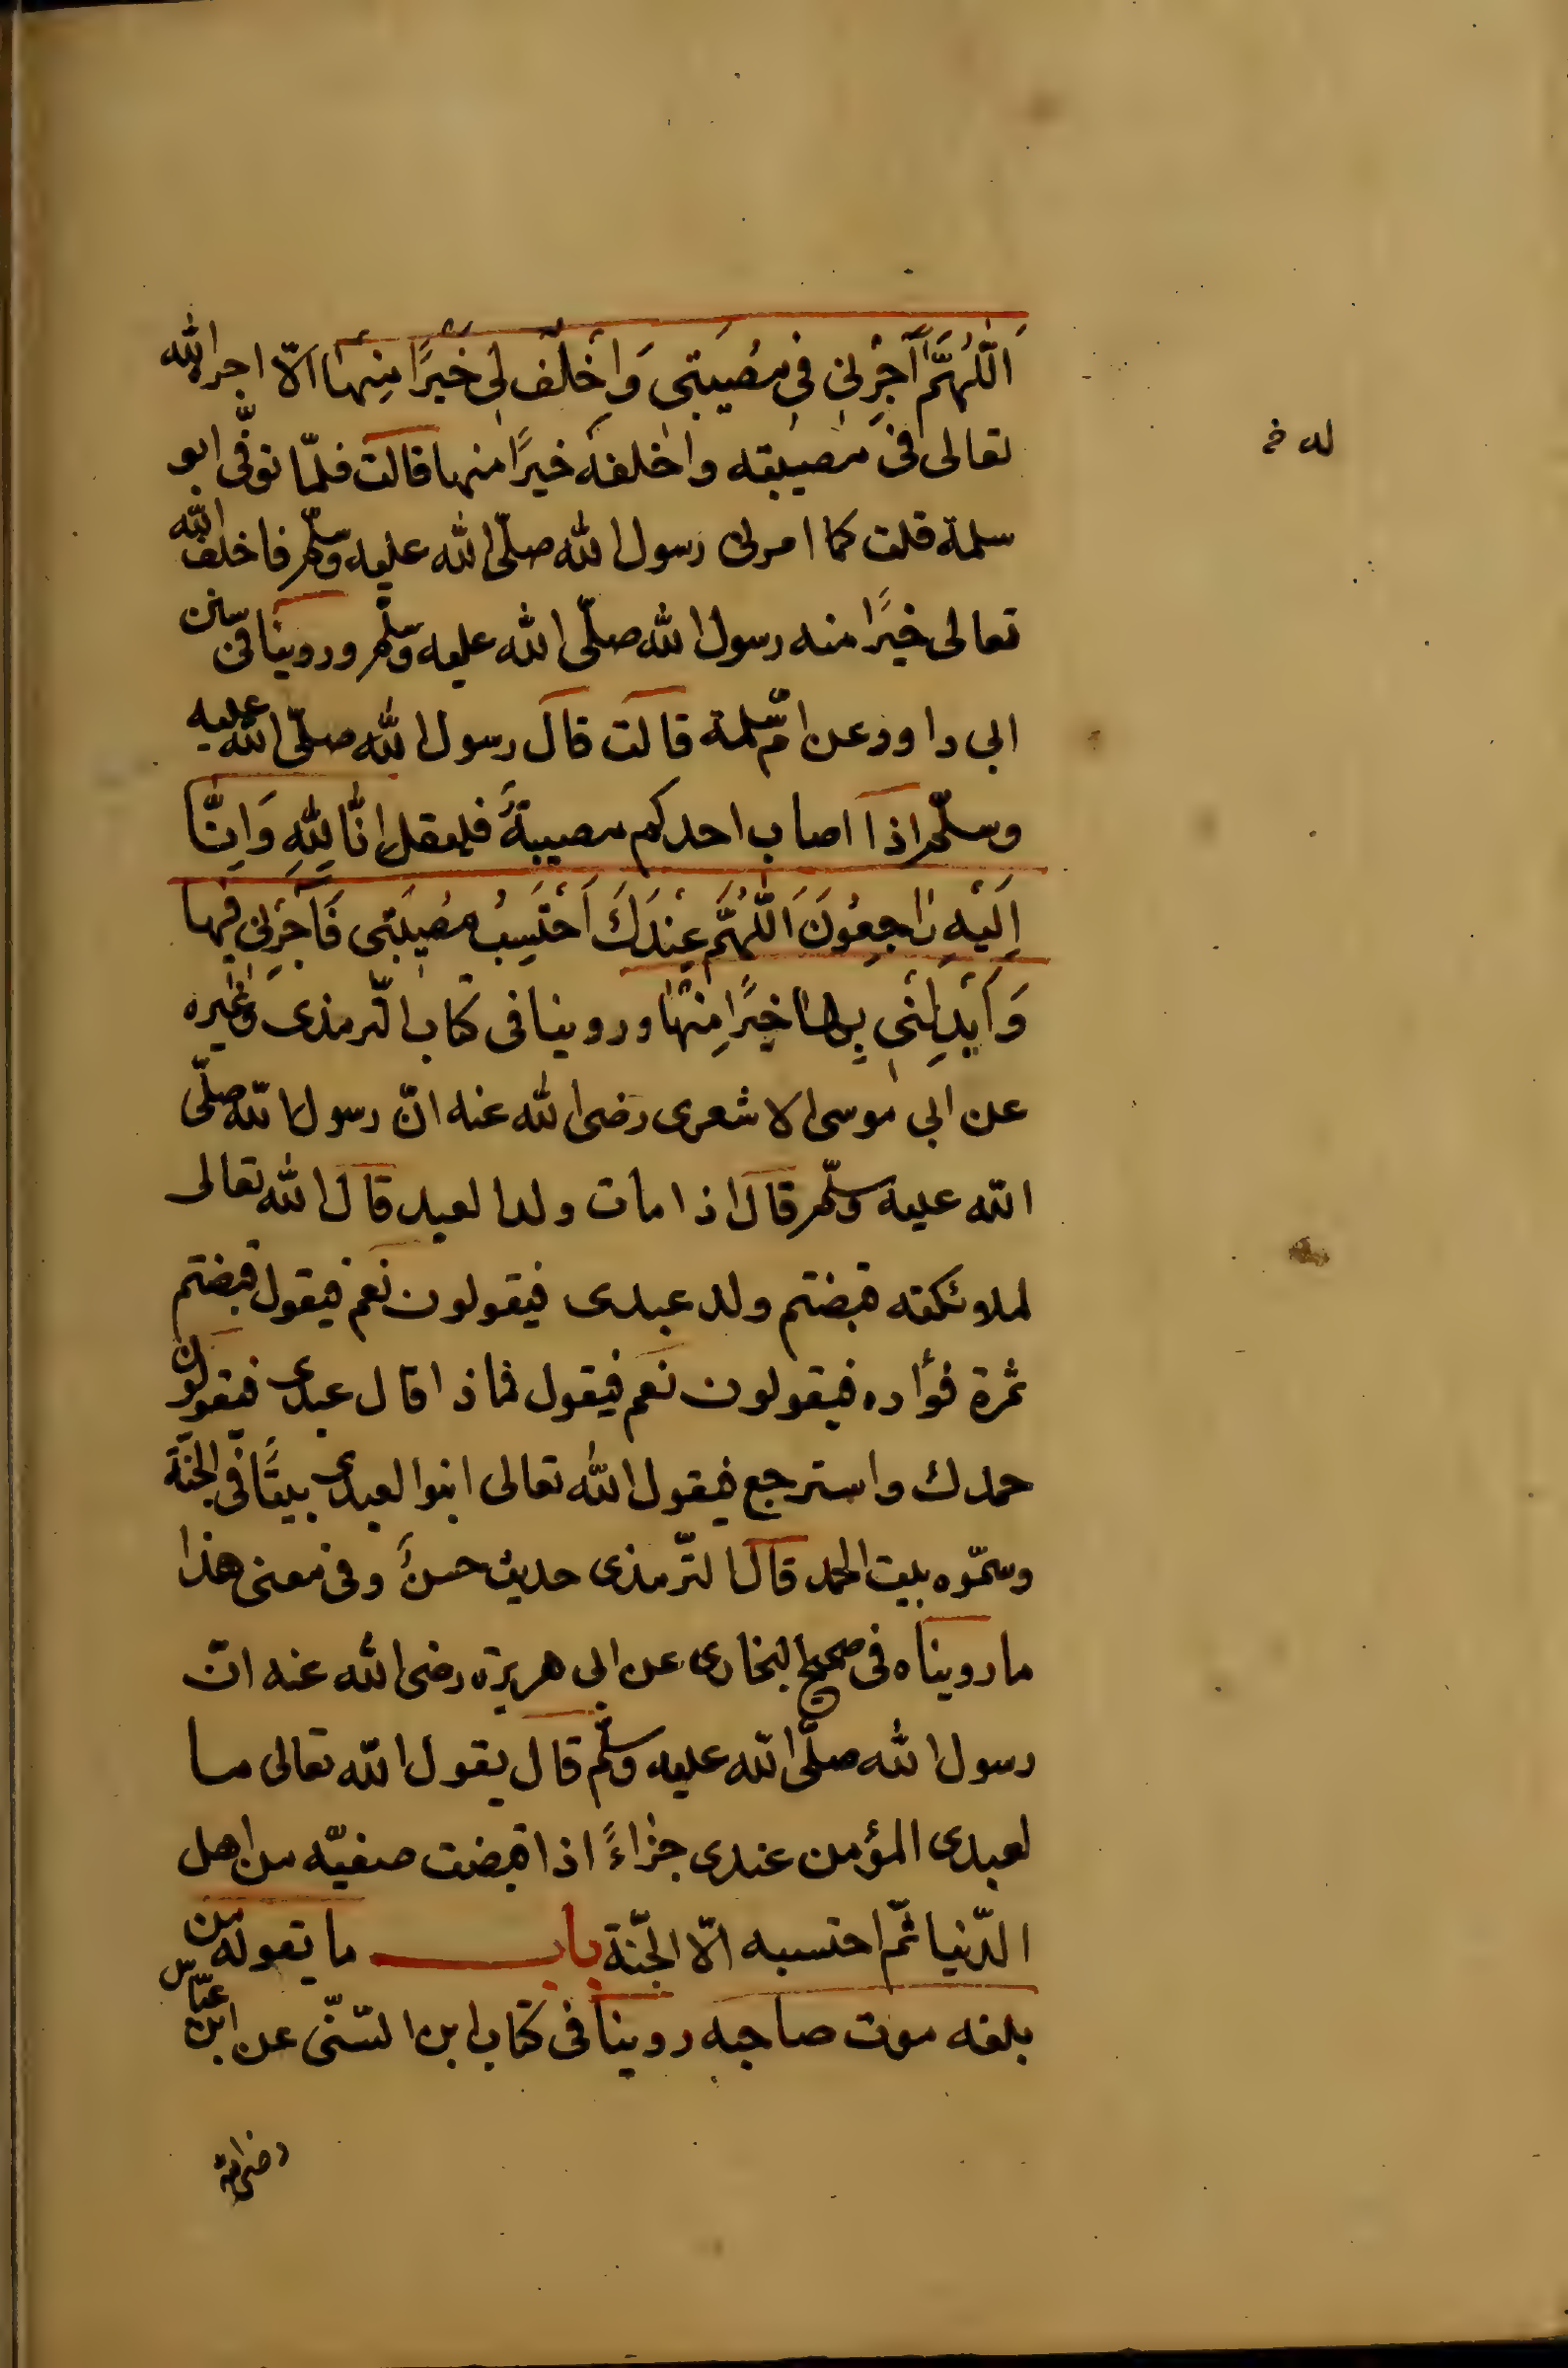 اَللّٰهُمَّ اَجِرْنِي فِي مُصِيبَتِي وَاَخْلِفْ لِي خَيْرًا مِنْهَا الّا اجره الله
تعالى فى مصيبته واخلفه خيرًا منها قالت فلمّا توفّى ابو
له خ
سلمة قلت كما امرنى رسول الله صلّى الله عليه وسلّم فاخلف الله
تعالى خيرًا منه رسول الله صلّى الله عليه وسلّم وروينا فى سنن
ابى داوود عن امّ سلمة قالت قال رسول الله صلّى الله عليه
وسلّم اذا اصاب احدكم مصيبةٌ فليقل اِنَّا لِلّٰهِ وَاِنَّا
اِلَيْهِ رَاجِعُونَ اَللّٰهُمَّ عِنْدَكَ اَحْتَسِبُ مُصِيبَتِى فَآجِرْنِى فيها
وَاَبْدِلْنِى بِهَا خَيْرًا مِنْهَا وروينا فى كتاب التّرمذى وغيره
عن ابى موسى الاشعرى رضى الله عنه انّ رسول الله صلّى
الله عليه وسلّم قال اذا مات ولد العبد قال الله تعالى
لملائكته قبضتم ولد عبدى فيقولون نعم فيقول قبضتم
ثمرة فؤاده فيقولون نعم فيقول فماذا قال عبدى فيقولون
حمدك واسترجع فيقول الله تعالى ابنوا لعبدى بيتًا فى الجنّة
وسمّوه بيت الحمد قال التّرمذى حديث حسنٌ وفى معنى هذا
ما رويناه فى صحيح البخارى عن ابى هريرة رضى الله عنه انّ
رسول الله صلّى الله عليه وسلّم قال يقول الله تعالى ما
لعبدى المؤمن عندى جزاءً اذا قبضت صفيّه من اهل
الدّنيا ثمّ احتسبه الّا الجنّة باب ما يقوله من
بلغه موت صاحبه روينا فى كتاب ابن السّنّى عن ابن عبّاس
رضى الله